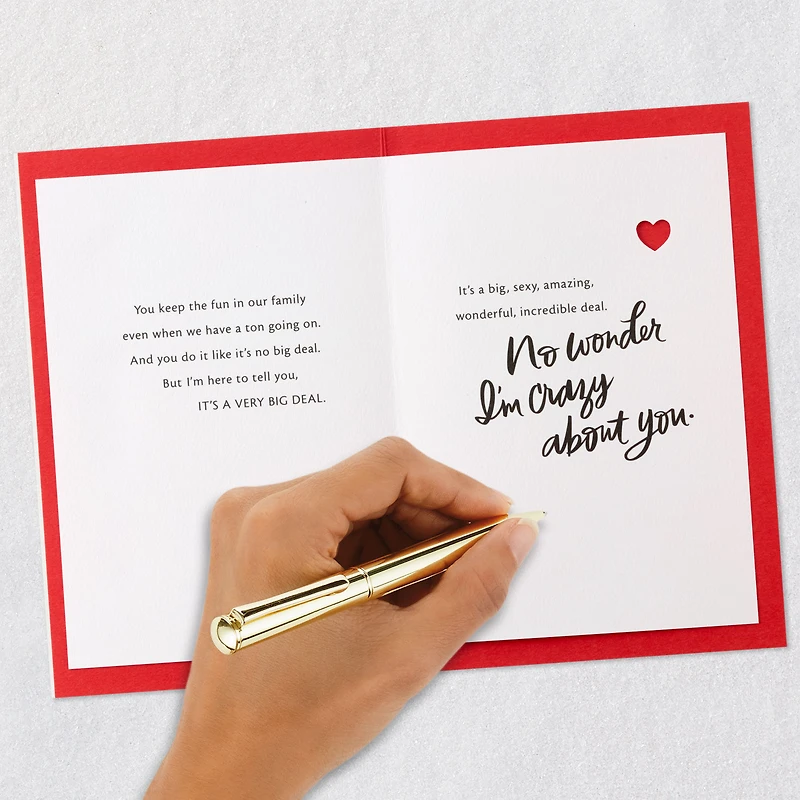 You keep the fun in our family
even when we have a ton going on.
And you do it like it's no big deal.
But I'm here to tell you,
IT'S A VERY BIG DEAL.
It's a big, sexy, amazing,
wonderful, incredible deal.
No wonder
I'm crazy
about you.